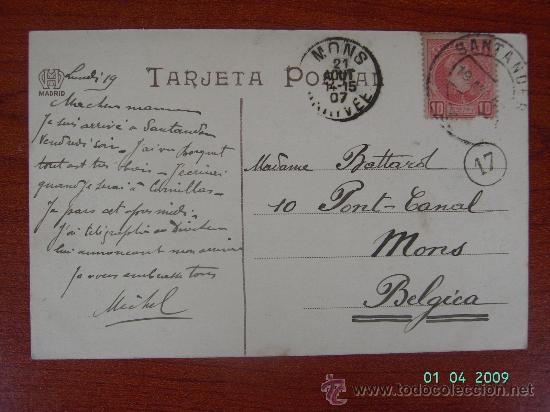 Lundi 19
MADRID
TARJETA POSTAL
MONS
21
AOUT
14-15
07
ARRIVÉE
10 10
SANTANDER
17
Ma chère maman
Je suis arrivé à Santander
Vendredi soir - J'ai vu
tout est très - J'écrirai
quand je serai à Comillas -
Je pars cet après midi -
J'ai télégraphié au Directeur
lui annonçant mon arrivée
Je vous embrasse tous
Michel
Madame Battard
10 Pont-Canal
Mons
Belgica
01 04 2009
www.todocoleccion.net